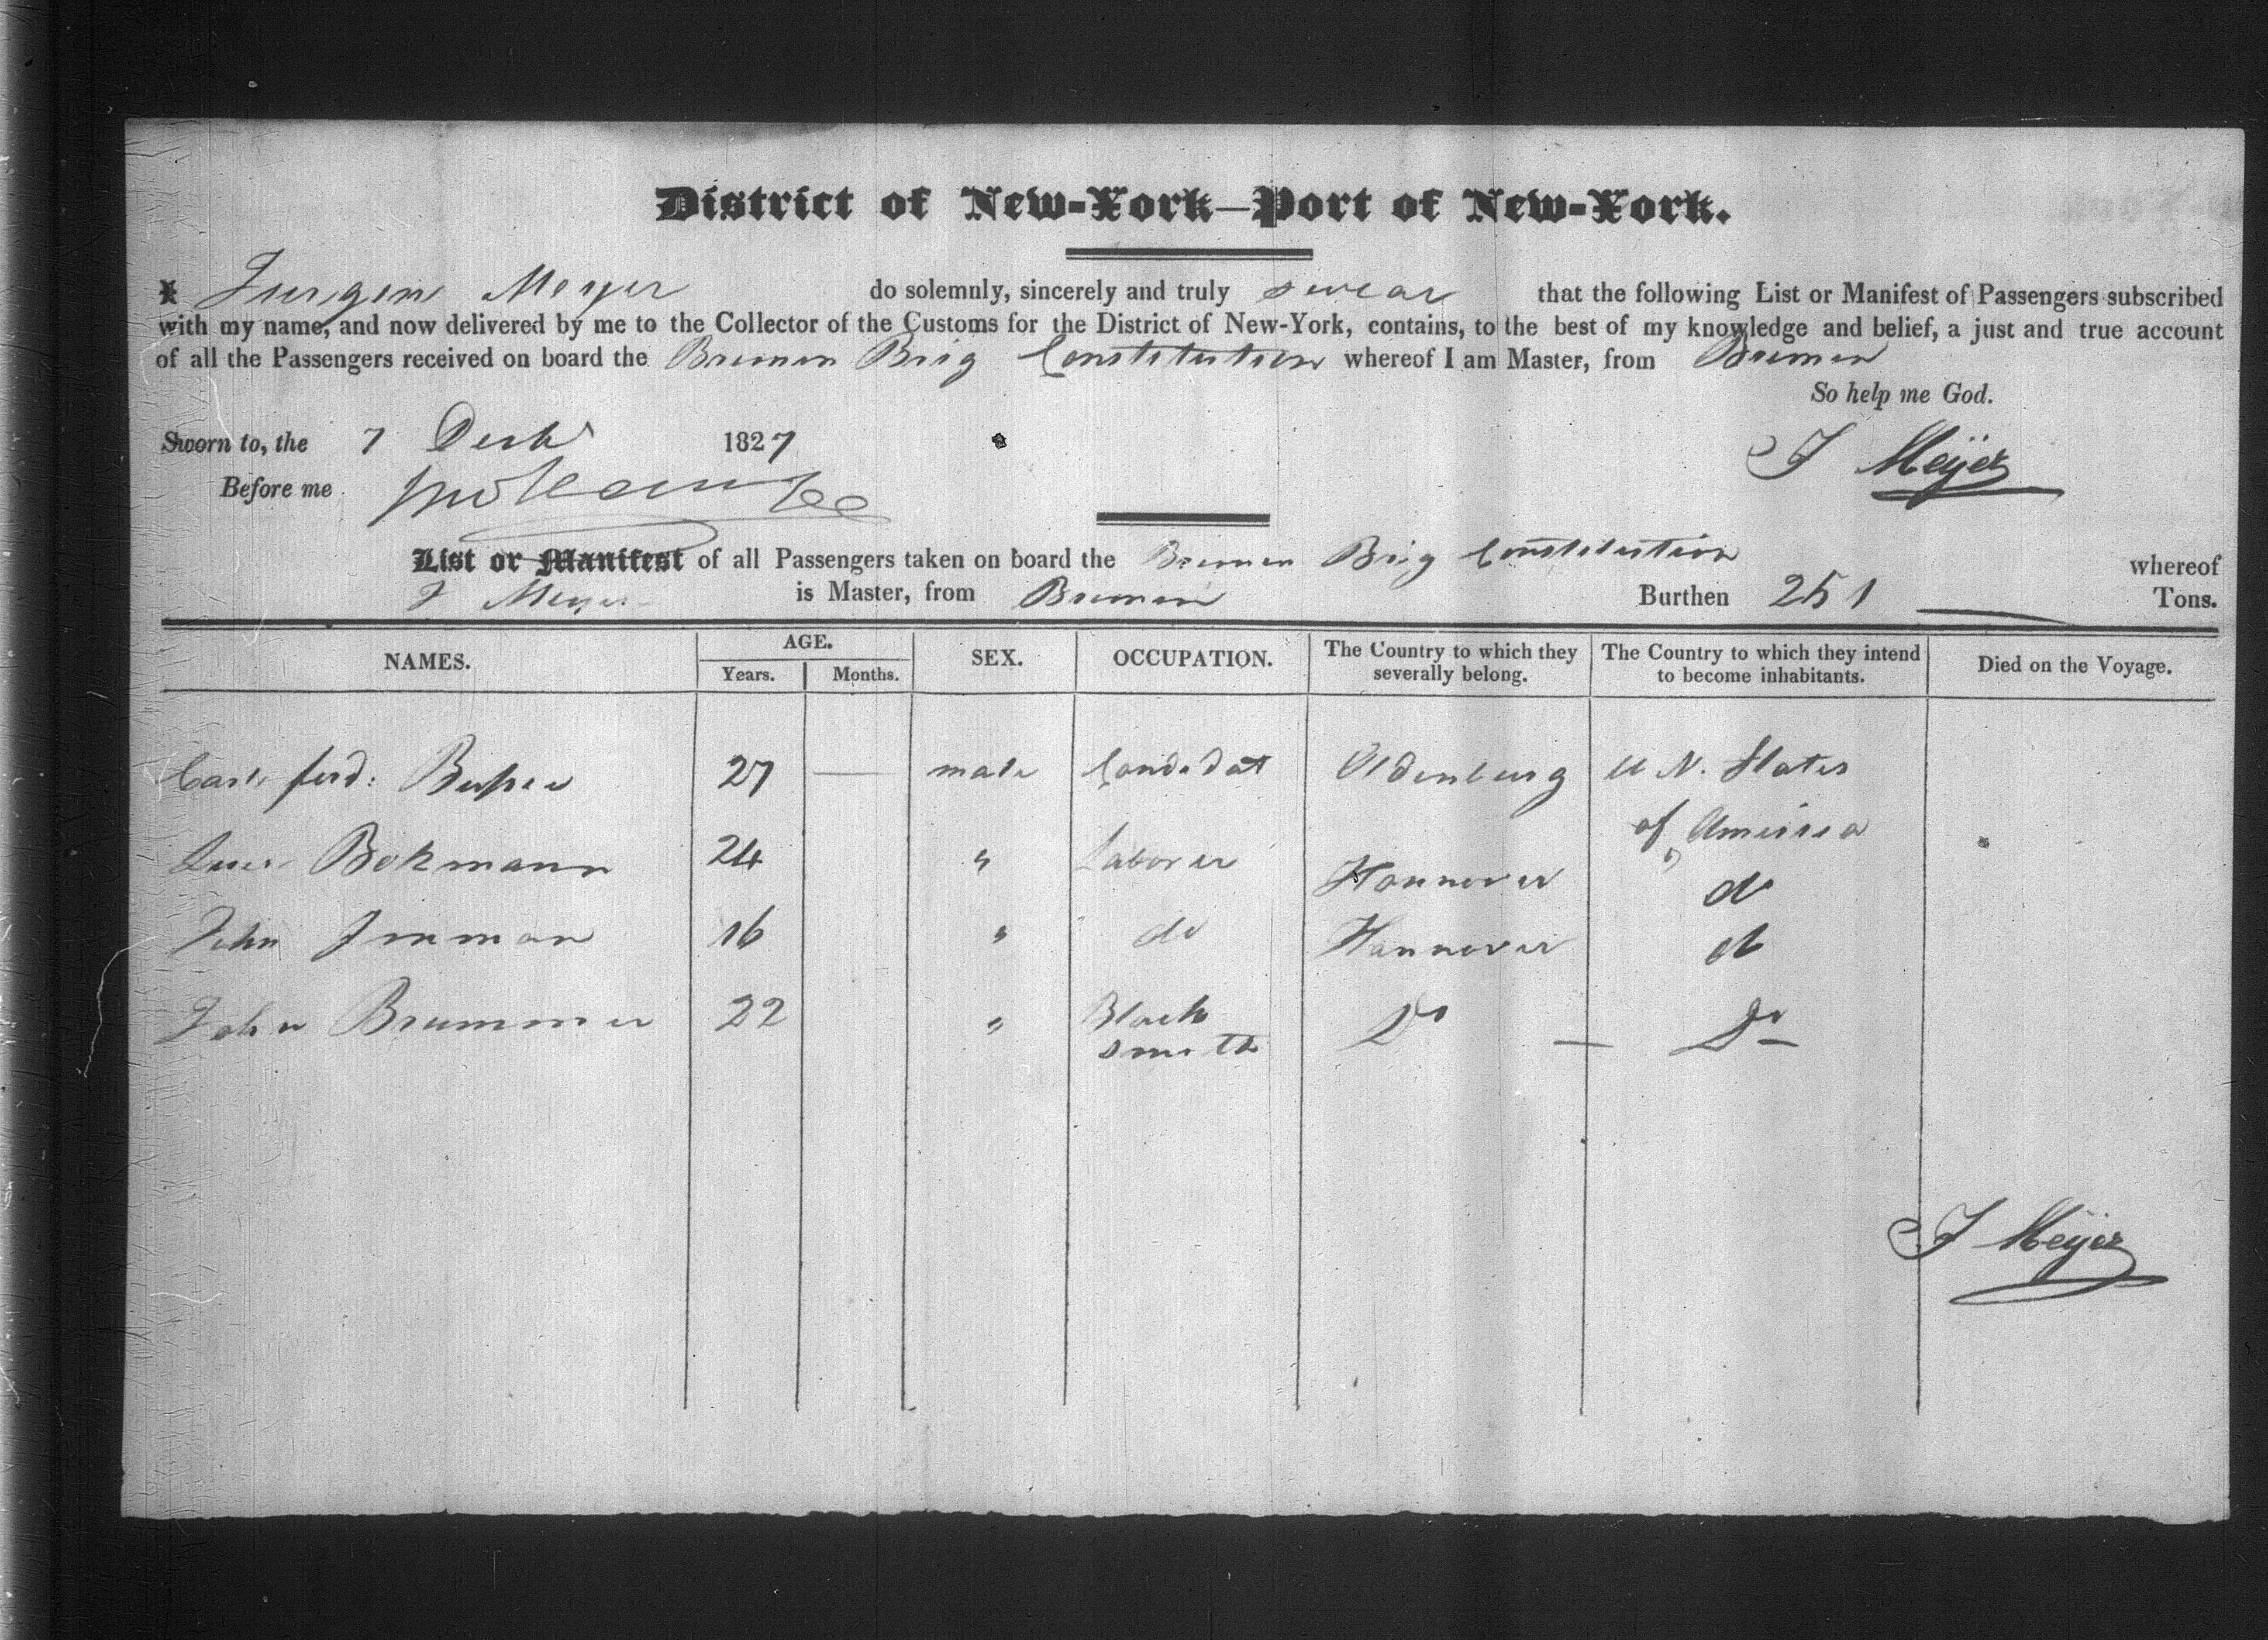 District of New-York—Port of New-York.
I Jurgen Meyer do solemnly, sincerely and truly swear that the following List or Manifest of Passengers subscribed
with my name, and now delivered by me to the Collector of the Customs for the District of New-York, contains, to the best of my knowledge and belief, a just and true account
of all the Passengers received on board the Bremen Brig Constitution whereof I am Master, from Bremen
So help me God.
Sworn to, the 7 Decbr 1827
J Meÿer
Before me
List or Manifest of all Passengers taken on board the Bremen Brig Constitution whereof
J Meyer is Master, from Bremen Burthen 251 Tons.
NAMES. AGE. SEX. OCCUPATION. The Country to which they severally belong. The Country to which they intend to become inhabitants. Died on the Voyage.
Years. Months.
Carl ferd: 27 — male Candidat Oldenburg U N. States
of America
Bokmann 24 " Laborer Hannover do
John Imman 16 " do Hannover do
John Brummer 22 " Black Do — Do
smith
J Meÿer